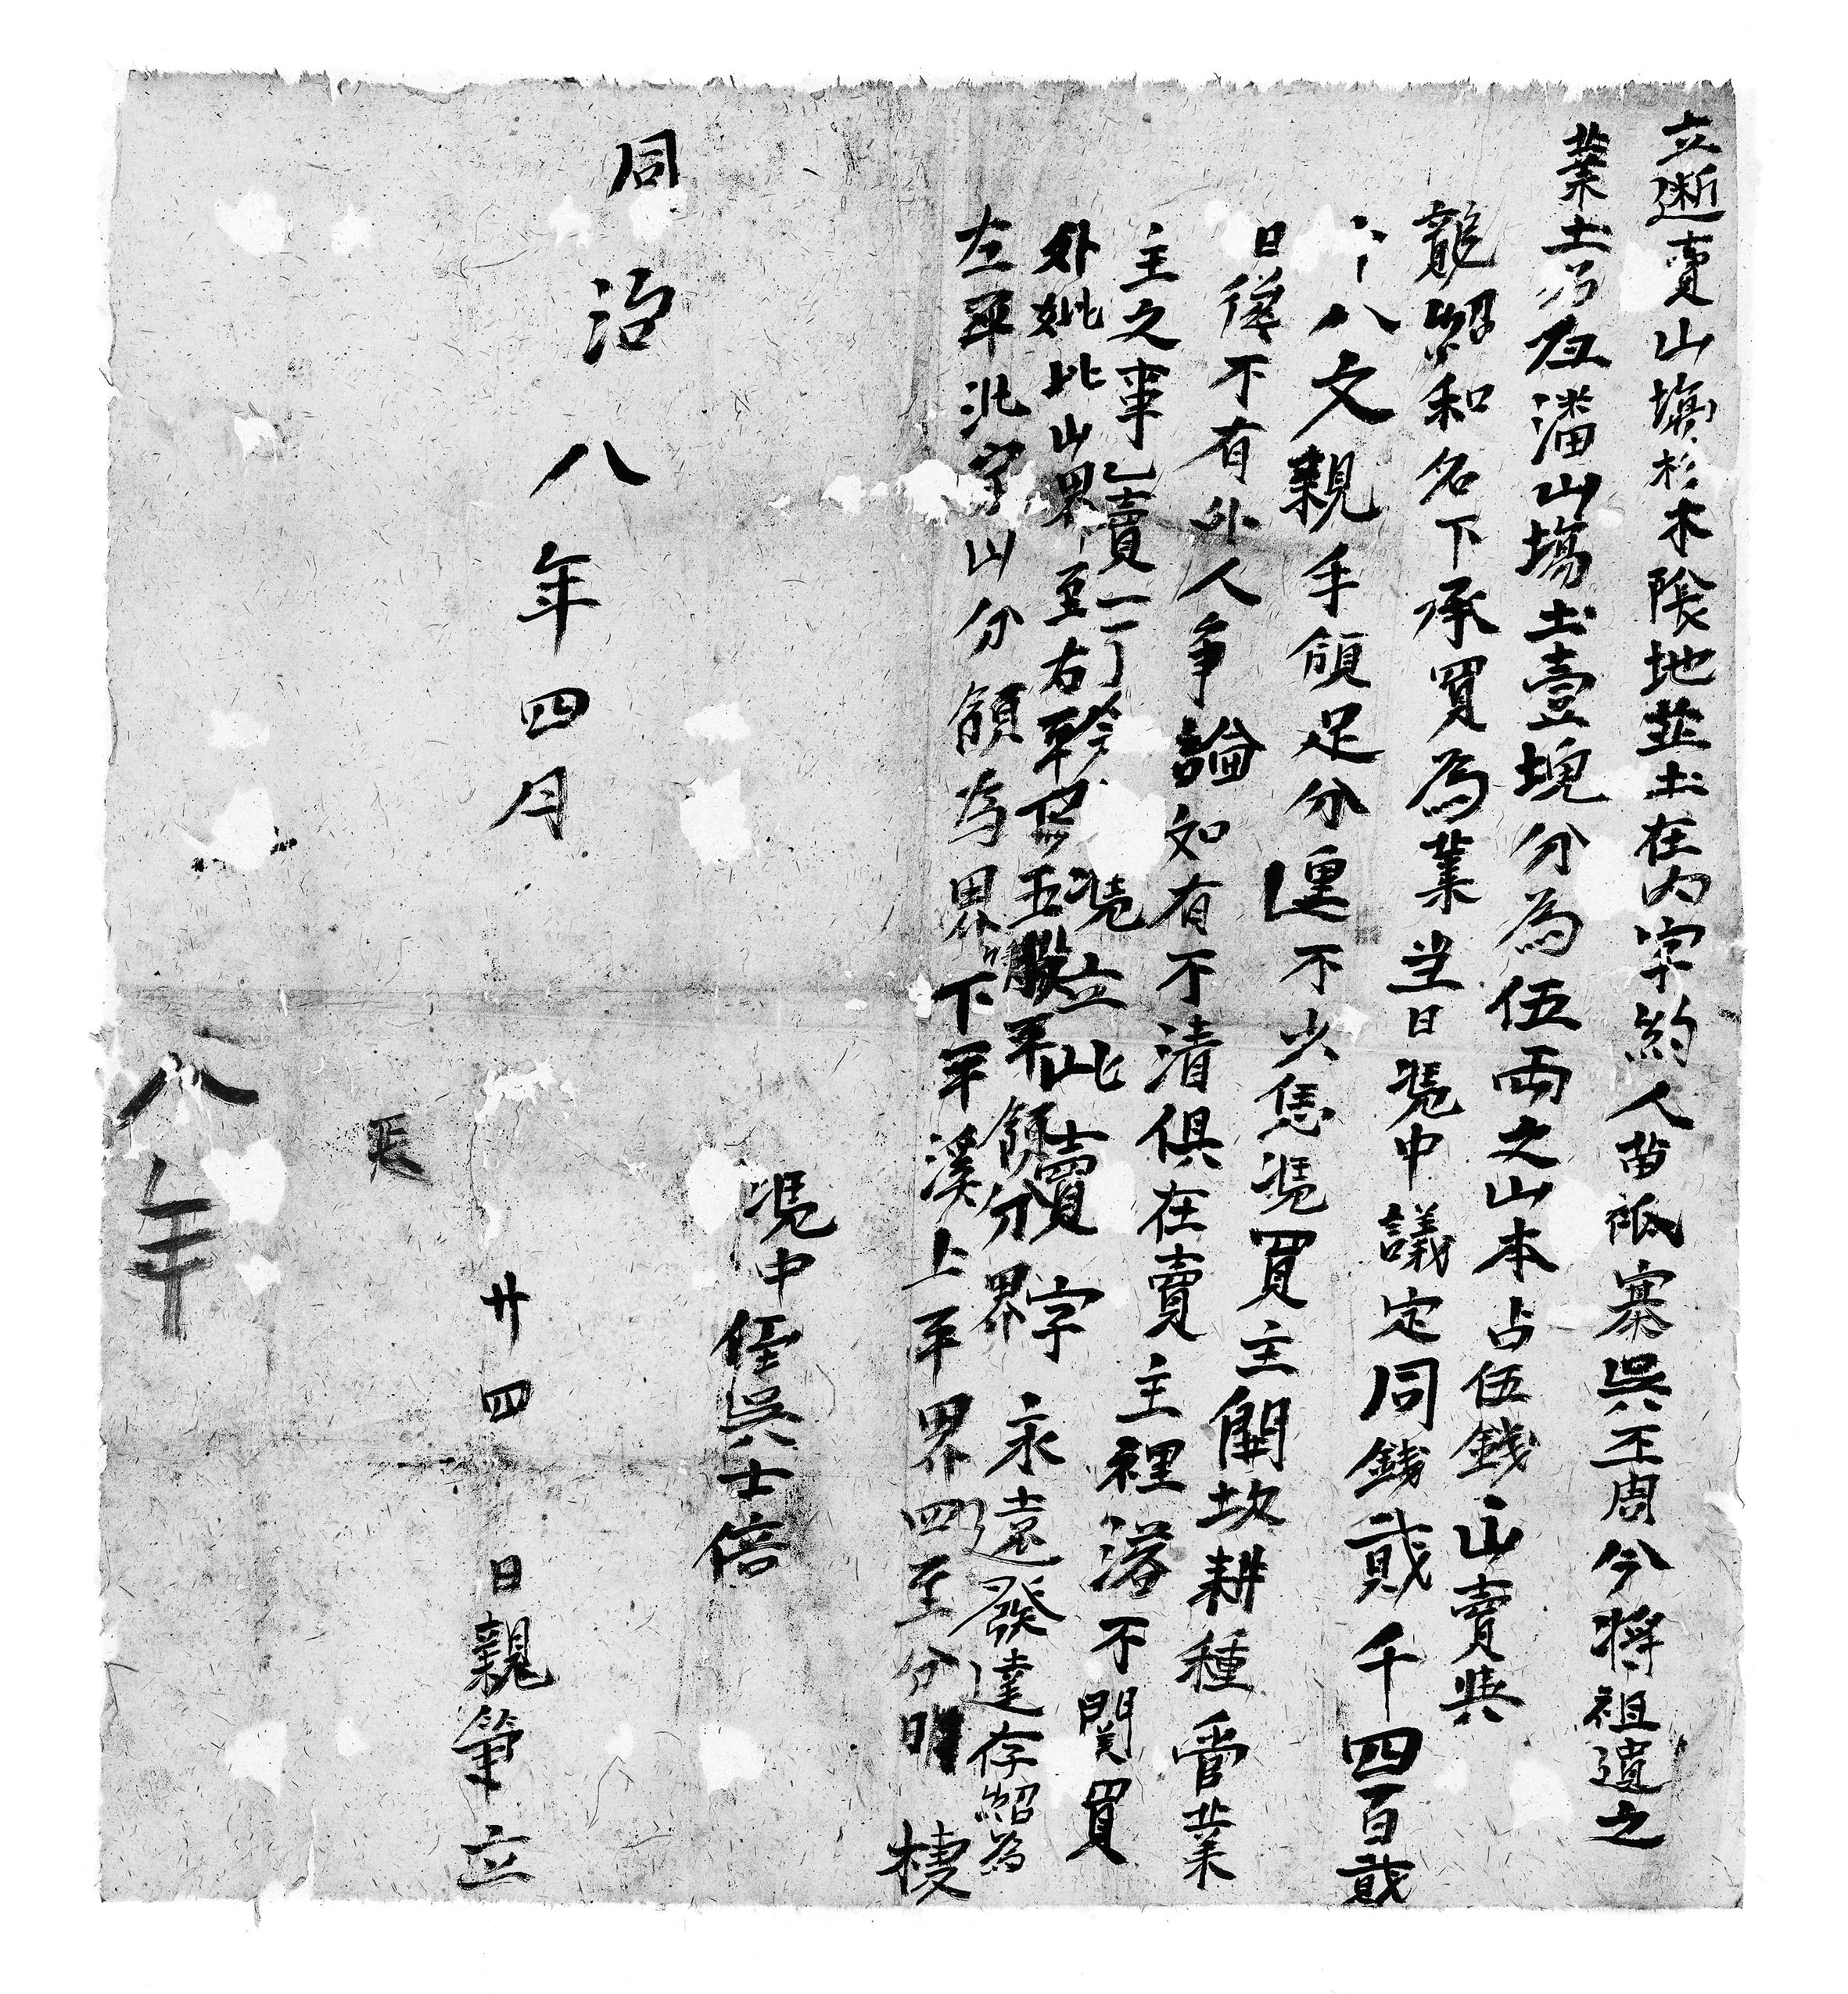 立斷賣山塲杉木陰地並土在內字約人苗祗寨吳玉周今將祖遺之
業土名伍潘山塲土壹塊分為伍両之山本占伍錢山賣與
龍紹和名下承買為業當日憑中議定同錢貳千四百貳
十八文親手領足分厘不少恁憑買主開坎耕種管業
日後不有外人争論如有不清俱在賣主裡落不関買
主之事乙賣一了憑立此賣字永遠發達存紹為
外批此山界至右平五股平領分界
左平沠字山分領為界下平溪上平界四至分明
㨗
憑中侄吳士倍
同治八年四月廿四日親筆立
八年